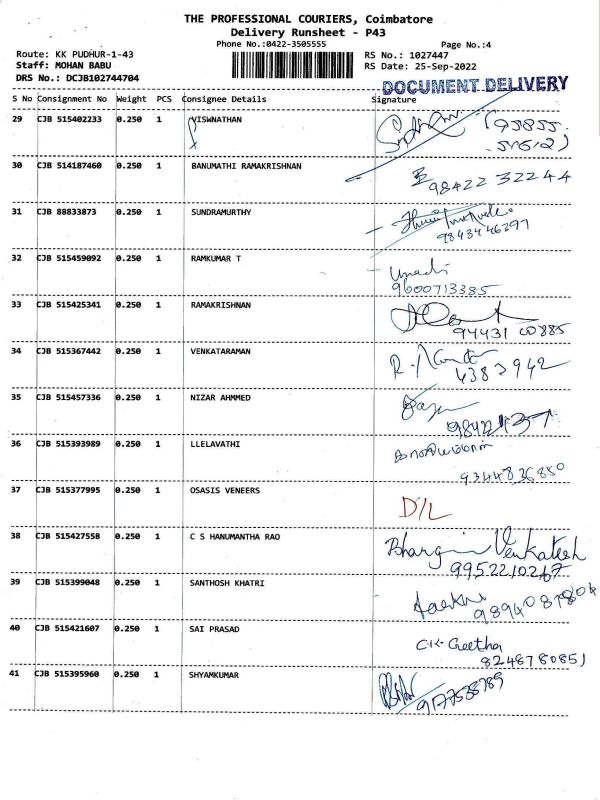 THE PROFESSIONAL COURIERS, Coimbatore
Delivery Runsheet - P43
Phone No.:0422-3505555 Page No.:4
Route: KK PUDHUR-1-43 RS No.: 1027447
Staff: MOHAN BABU RS Date: 25-Sep-2022
DRS No.: DCJB102744704
DOCUMENT DELIVERY
S No Consignment No Weight PCS Consignee Details Signature
29 CJB 515402233 0.250 1 VISWNATHAN
30 CJB 514187460 0.250 1 BANUMATHI RAMAKRISHNAN
98422 32244
31 CJB 88833873 0.250 1 SUNDRAMURTHY
9843446297
32 CJB 515459092 0.250 1 RAMKUMAR T
9600713385
33 CJB 515425341 0.250 1 RAMAKRISHNAN
34 CJB 515367442 0.250 1 VENKATARAMAN
4383942
35 CJB 515457336 0.250 1 NIZAR AHMMED
36 CJB 515393989 0.250 1 LLELAVATHI
9344836850
37 CJB 515377995 0.250 1 OSASIS VENEERS
D/L
38 CJB 515427558 0.250 1 C S HANUMANTHA RAO
Venkatesh
9952210267
39 CJB 515399048 0.250 1 SANTHOSH KHATRI
40 CJB 515421607 0.250 1 SAI PRASAD
C.K. Geetha
8248780851
41 CJB 515395960 0.250 1 SHYAMKUMAR